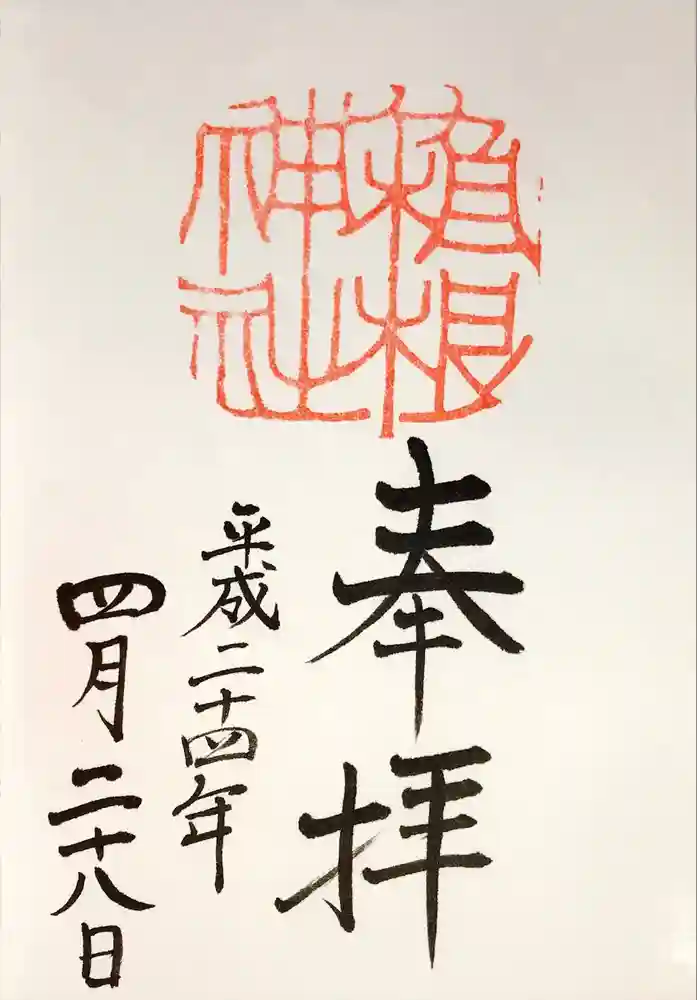 根
神社
奉拝
平成二十四年
四月二十八日